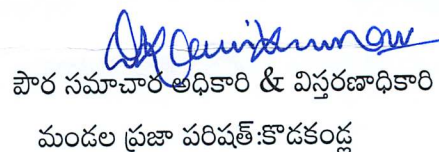 పౌర సమాచార అధికారి & విస్తరణాధికారి
మండల ప్రజా పరిషత్:కొడకండ్ల